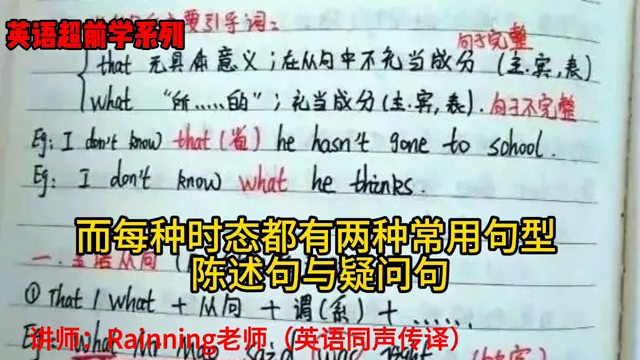 英语超前学系列
要引导词：
句子完整
that 无具体意义；在从句中不充当成分（主.宾,表）
what “所……的”；充当成分(主.宾,表).句子不完整
Eg: I don't know that(省) he hasn't gone to school.
Eg: I don't know what he thinks.
而每种时态都有两种常用句型
陈述句与疑问句
一.主语从句
① That / what + 从句 + 谓(系) + ……
讲师：Rainning老师（英语同声传译）